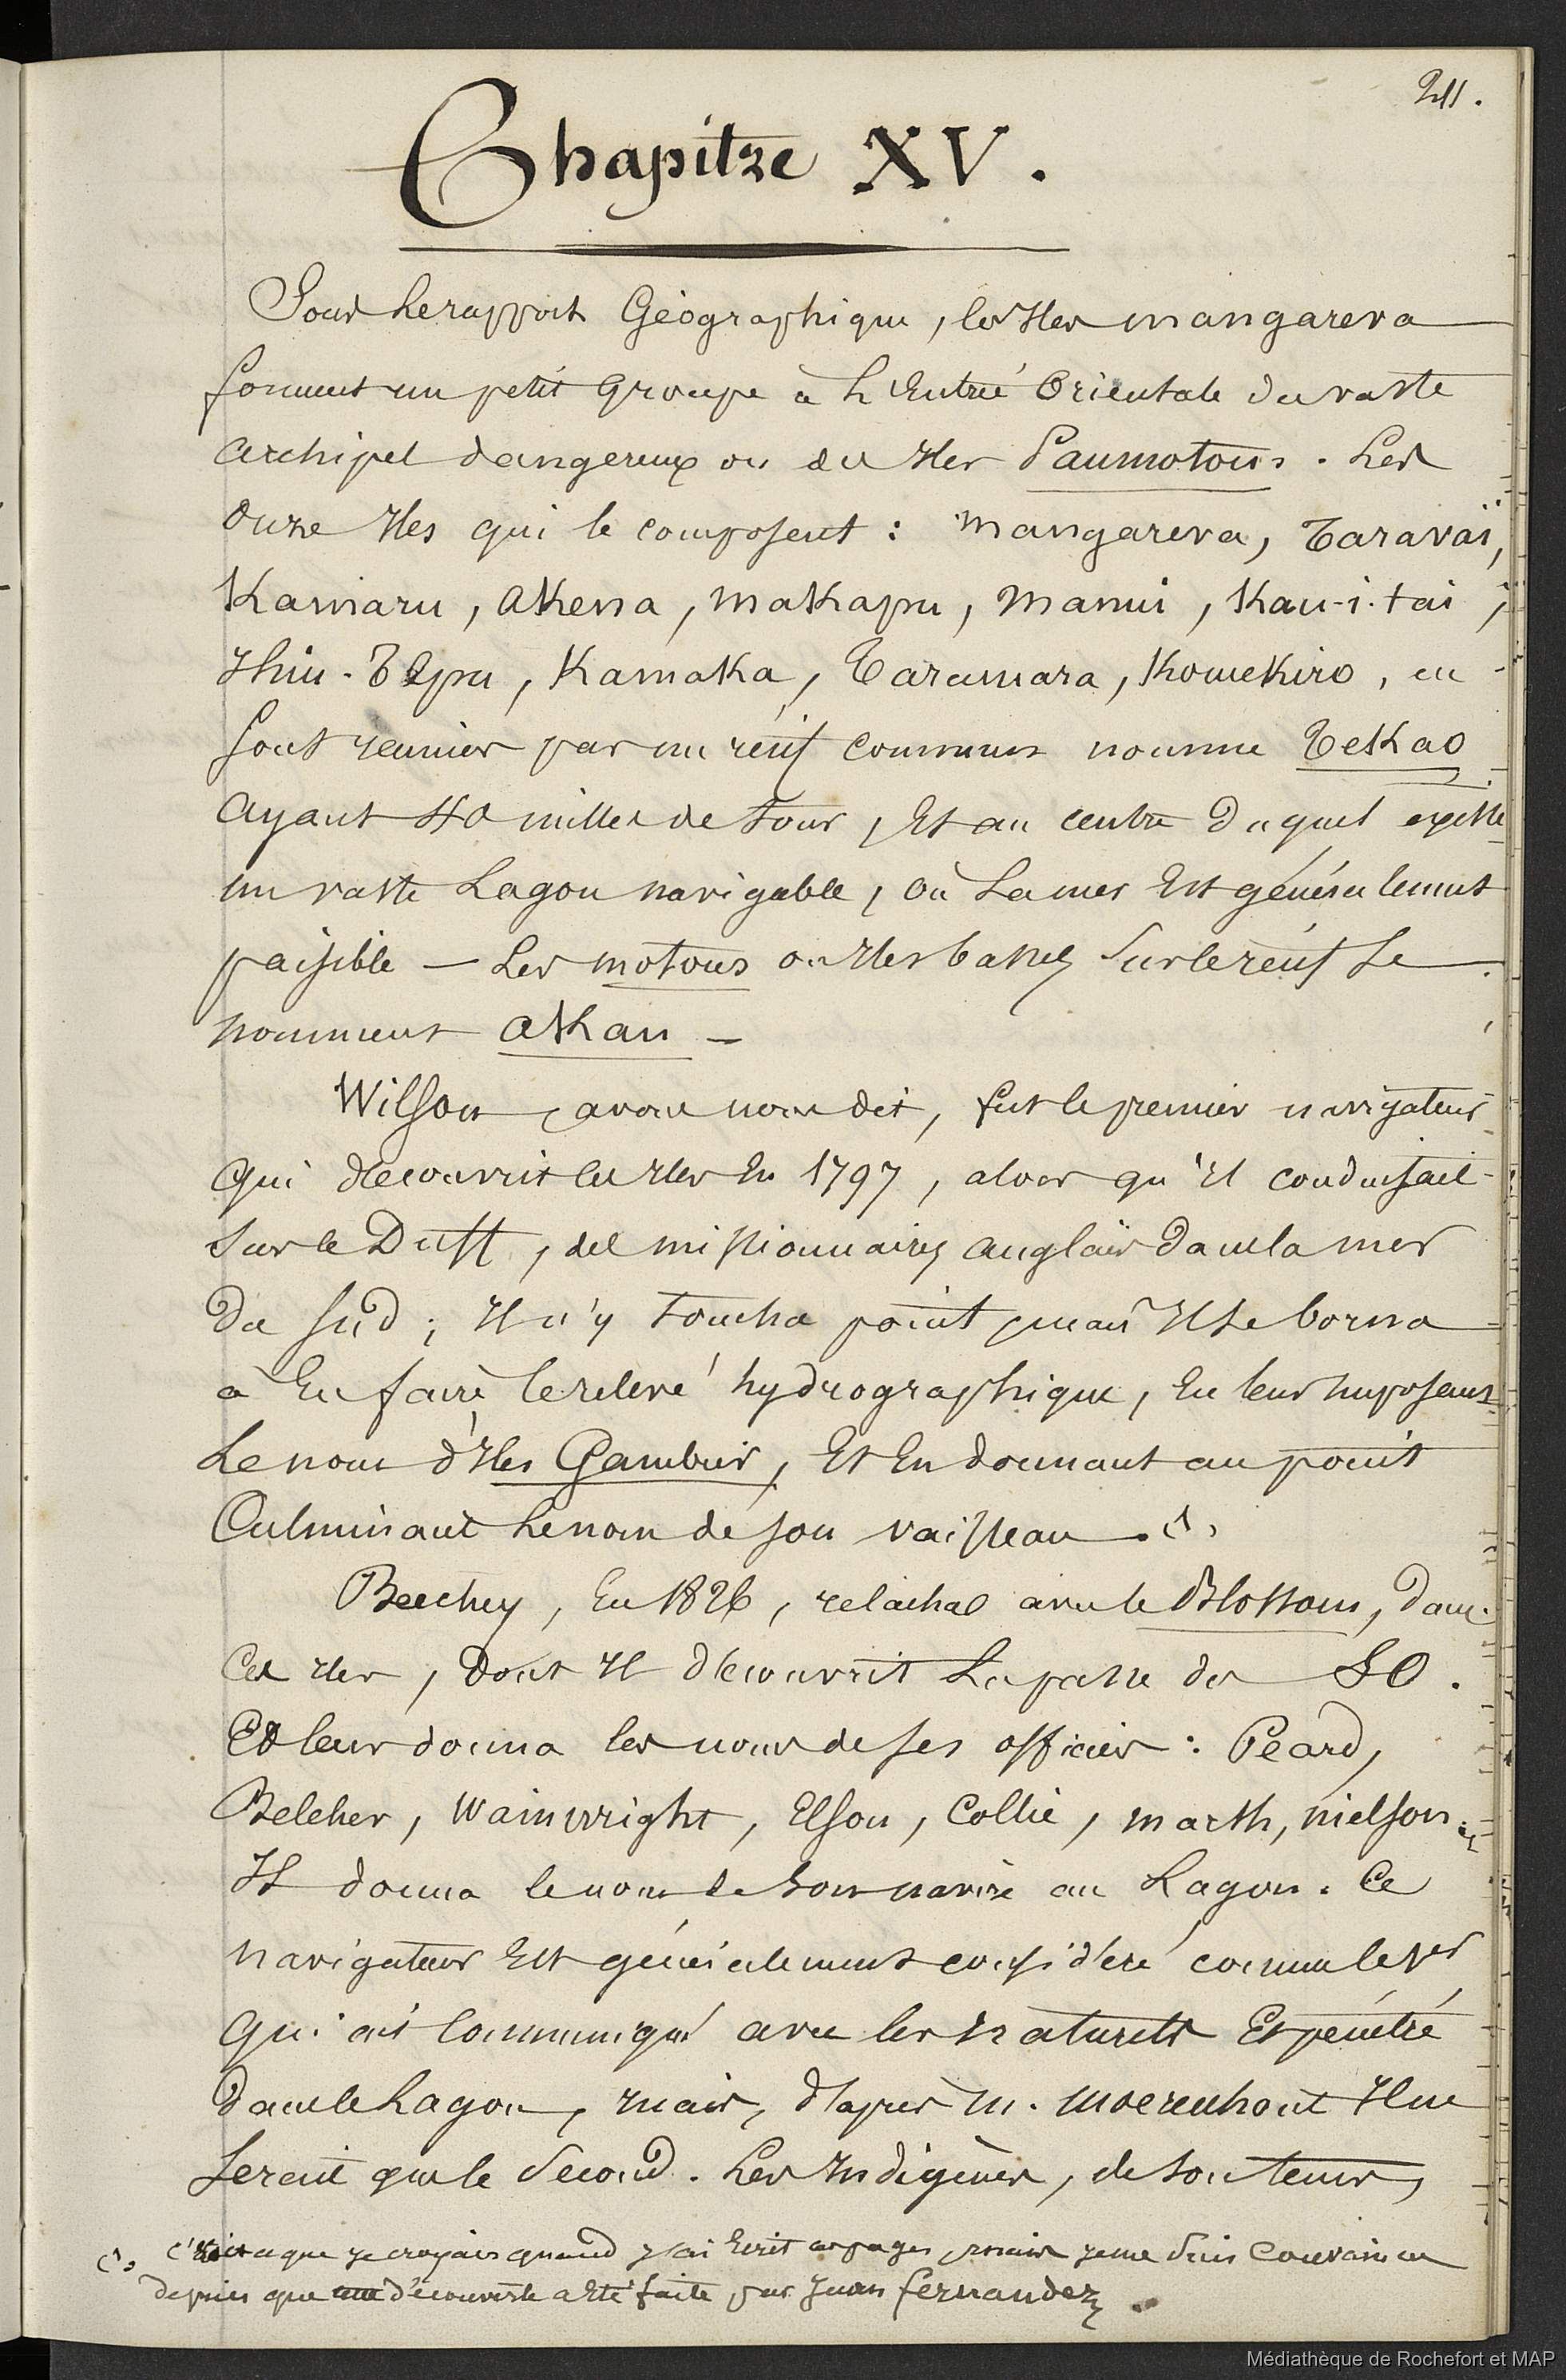 211.
Chapitre XV.
Sous le rapport Géographique, les Iles mangareva
forment un petit groupe à l'Entrée Orientale du vaste
archipel dangereux ou des Iles Paumotous. Les
onze Iles qui le composent : mangareva, Taravaï,
Kamaru, aKena, maKapu, manui, Kau-i-tai,
Ihiu-Tepu, KamaKa, Taraumara, KomeKiro, en
sont reunies par un réeif commun nommé TeKao
ayant 40 milles de tour, Et au centre duquel existe
un vaste Lagon navigable, où La mer Est généralement
paisible — Les motous ou Iles basses sur le réeif se
nomment aKau —
Wilson, avons nous dit, fut le premier navigateur
qui découvrit ces Iles En 1797, alors qu'Il conduisait
sur le Duff, des missionnaires anglais dans la mer
du sud ; Il n'y toucha point, mais Il se borna
à En faire le relevé hydrographique, En leur Imposant
Le nom d'Iles Gambier, Et En donnant au point
Culminant le nom de son vaisseau. (1)
Beechey, En 1826, relacha avec le Blossom, dans
ces Iles, dont Il découvrit La passe du SO.
Et leur donna les noms de ses officiers : Peard,
Belcher, Wainwright, Elson, Collie, marsh, nielson.
Il donna le nom de son navire au Lagon. Ce
navigateur Est généralement considéré comme le 1er
qui ait communiqué avec les naturels Et pénétré
dans le Lagon, mais, d'après M. moerenhout Il ne
serait que le second. Les Indigènes, de son temps,
(1) c'est ce que je croyais quand j'ai Ecrit ces pages, mais je me suis convaincu
depuis que cette découverte a Eté faite par Juan fernandez.
Médiathèque de Rochefort et MAP